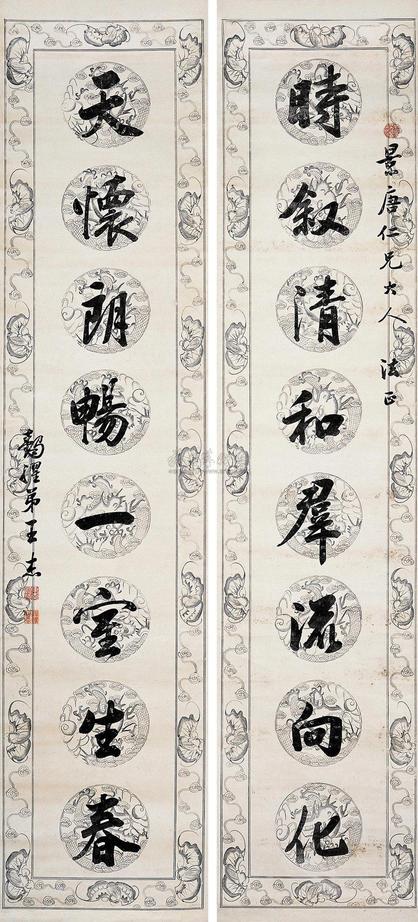 景唐仁兄大人 法正
時叙清和羣流向化
天懷朗暢一室生春
弟王杰